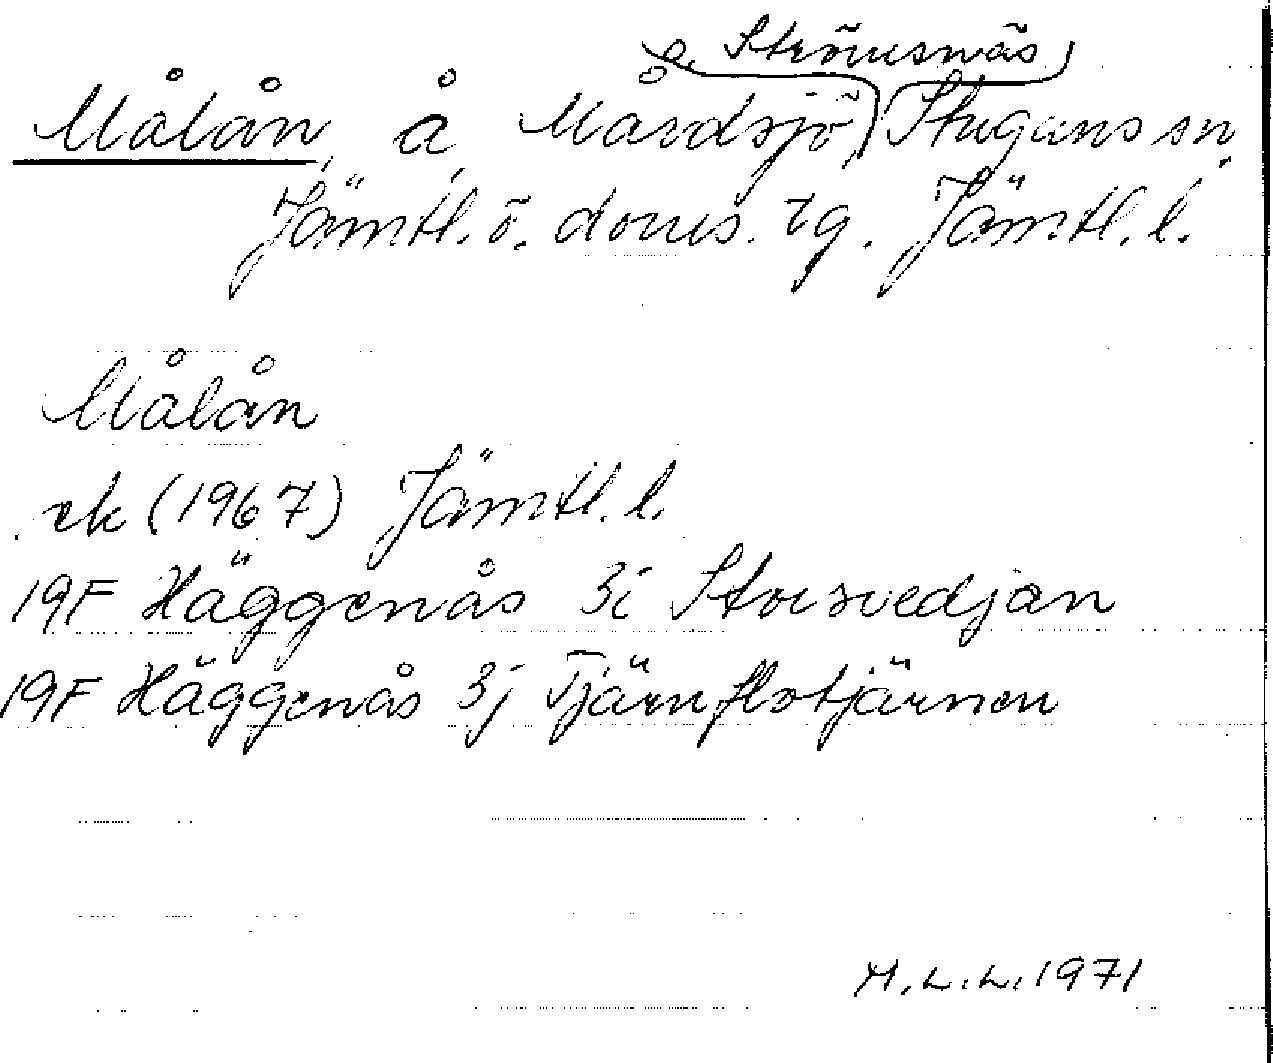 o. Strömsnäs
Målån, å, Mårdsjö, Stuguns sn,
Jämtl. ö. doms. tg. Jämtl. l.
Målån
ek (1967) Jämtl. l.
19F Häggenås 3i Storsvedjan
19F Häggenås 3j Tjärnflotjärnen
H.L.L. 1971